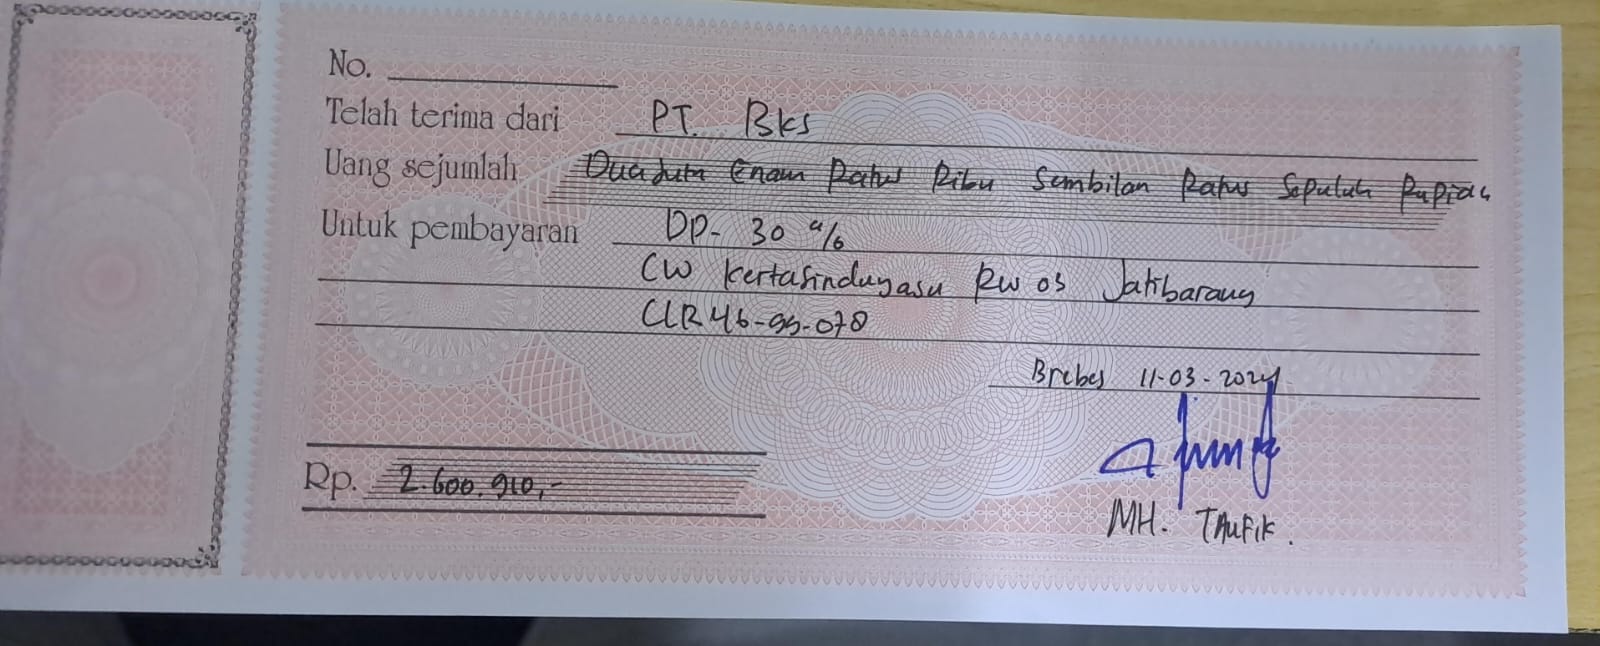 No.
Telah terima dari PT. Bks
Uang sejumlah Dua Juta Enam Ratus Ribu Sembilan Ratus Sepuluh Rupiah
Untuk pembayaran DP- 30 %
CW Kertasinduyasu RW 03 Jatibarang
CLR46-99-078
Brebes 11-03-2024
Rp. 2.600.910,-
MH. TAUFIK.